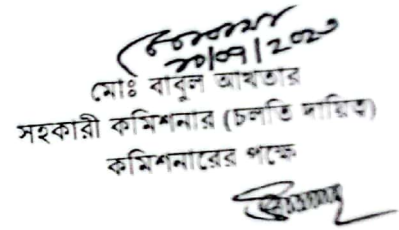 মোঃ বাবুল আখতার
সহকারী কমিশনার (চলতি দায়িত্ব)
কমিশনারের পক্ষে